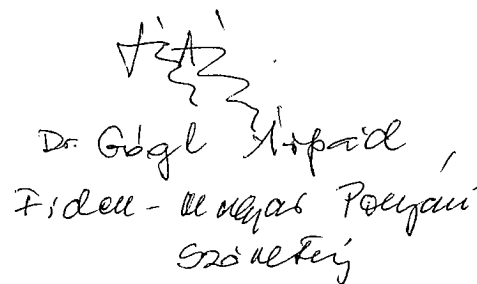 Dr. Gógl Árpád
Fidesz - Magyar Polgári
Szövetség